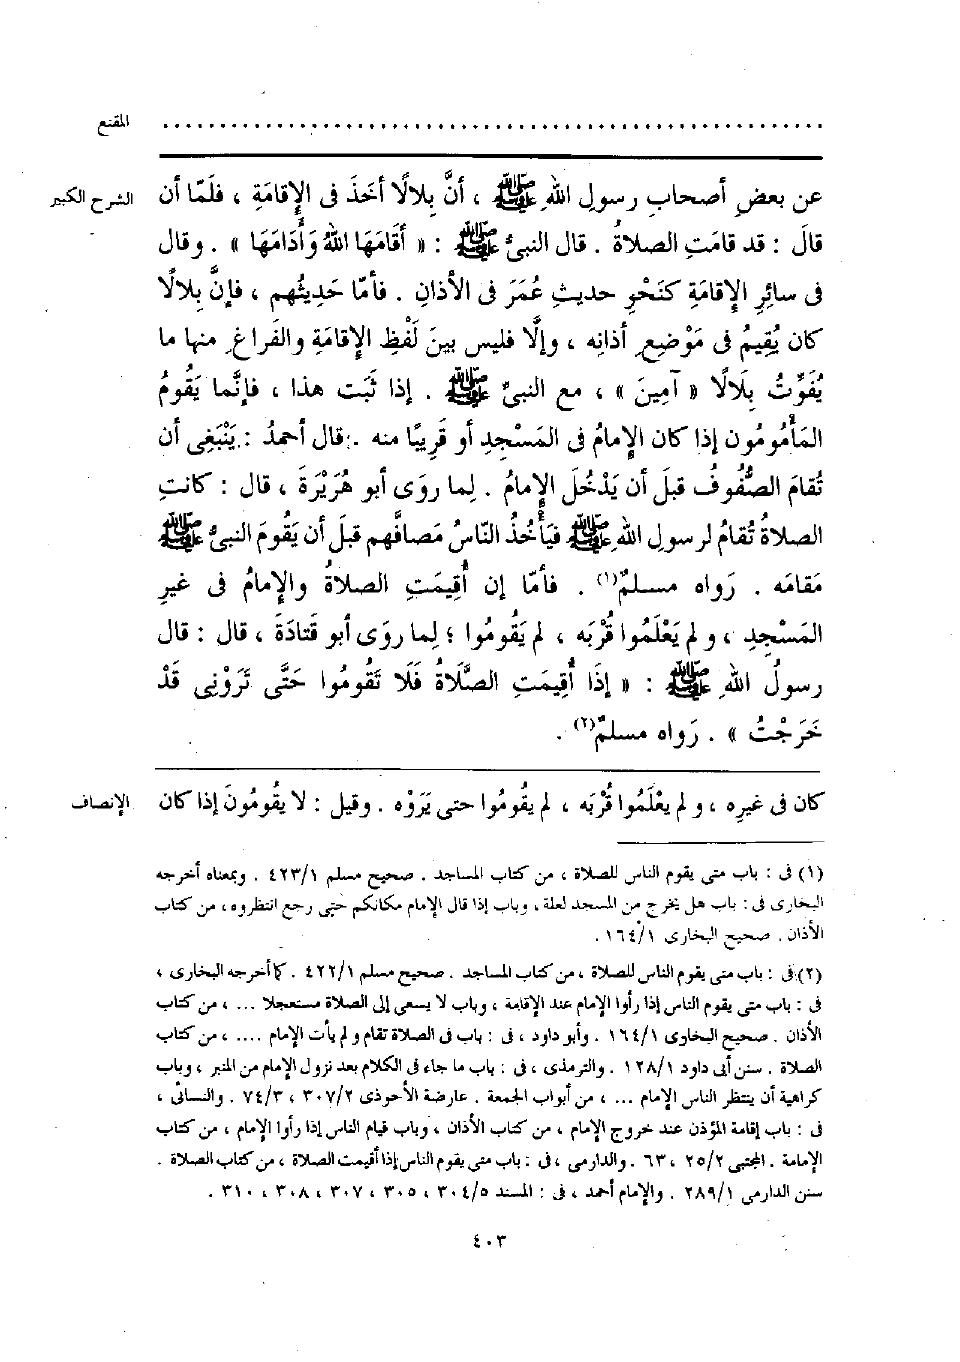 المقنع ............................................................
الشرح الكبير
عن بعضِ أصحابِ رسولِ اللهِ ﷺ ، أنَّ بِلالًا أخَذَ فى الإِقامَةِ ، فلَمّا أن
قالَ : قد قامَتِ الصلاةُ . قال النبىُّ ﷺ : « أقَامَهَا اللهُ وَأَدَامَهَا » . وقال
فى سائِرِ الإِقامَةِ كنَحْوِ حديثِ عُمَرَ فى الأذانِ . فأمّا حَدِيثُهم ، فإنَّ بِلالًا
كان يُقِيمُ فى مَوْضِعِ أذانِه ، وإلَّا فليس بينَ لَفْظِ الإِقامَةِ والفَراغِ منها ما
يُفَوِّتُ بِلَالًا « آمِينَ » ، مع النبىِّ ﷺ . إذا ثَبَت هذا ، فإنَّما يَقُومُ
المَأْمُومُون إذا كان الإِمامُ فى المَسْجِدِ أو قَرِيبًا منه . قال أحمدُ : يَنْبَغِى أن
تُقامَ الصُّفُوفُ قبلَ أن يَدْخُلَ الإِمامُ . لِما روَى أبو هُرَيْرَةَ ، قال : كانتِ
الصلاةُ تُقامُ لرسولِ اللهِ ﷺ فيَأْخُذُ النّاسُ مَصافَّهم قبلَ أن يَقُومَ النبىُّ ﷺ
مَقامَه . رَواه مسلمٌ(١) . فأمّا إن أُقِيمَتِ الصلاةُ والإِمامُ فى غيرِ
المَسْجِدِ ، ولم يَعْلَمُوا قُرْبَه ، لم يَقُومُوا ؛ لِما روَى أبو قَتادَةَ ، قال : قال
رسولُ اللهِ ﷺ : « إذَا أُقِيمَتِ الصَّلَاةُ فَلَا تَقُومُوا حَتَّى تَرَوْنِى قَدْ
خَرَجْتُ » . رَواه مسلمٌ(٢) .
الإنصاف
كان فى غيرِه ، ولم يعْلَمُوا قُرْبَه ، لم يقُومُوا حتى يَرَوْه . وقيل : لا يقُومُونَ إذا كان
(١) فى : باب متى يقوم الناس للصلاة ، من كتاب المساجد . صحيح مسلم ٤٢٣/١ . وبمعناه أخرجه
البخارى فى : باب هل يخرج من المسجد لعلة ، وباب إذا قال الإمام مكانكم حتى رجع انتظروه ، من كتاب
الأذان . صحيح البخارى ١٦٤/١ .
(٢) فى : باب متى يقوم الناس للصلاة ، من كتاب المساجد . صحيح مسلم ٤٢٢/١ . كما أخرجه البخارى ،
فى : باب متى يقوم الناس إذا رأوا الإمام عند الإقامة ، وباب لا يسعى إلى الصلاة مستعجلا ... ، من كتاب
الأذان . صحيح البخارى ١٦٤/١ . وأبو داود ، فى : باب فى الصلاة تقام ولم يأت الإمام .... ، من كتاب
الصلاة . سنن أبى داود ١٢٨/١ . والترمذى ، فى : باب ما جاء فى الكلام بعد نزول الإمام من المنبر ، وباب
كراهية أن ينتظر الناس الإمام ... ، من أبواب الجمعة . عارضة الأحوذى ٣٠٧/٢ ، ٧٤/٣ . والنسائى ،
فى : باب إقامة المؤذن عند خروج الإمام ، من كتاب الأذان ، وباب قيام الناس إذا رأوا الإمام ، من كتاب
الإمامة . المجتبى ٢٥/٢ ، ٦٣ . والدارمى ، فى : باب متى يقوم الناس إذا أقيمت الصلاة ، من كتاب الصلاة .
سنن الدارمى ٢٨٩/١ . والإمام أحمد ، فى : المسند ٣٠٤/٥ ، ٣٠٥ ، ٣٠٧ ، ٣٠٨ ، ٣١٠ .
٤٠٣